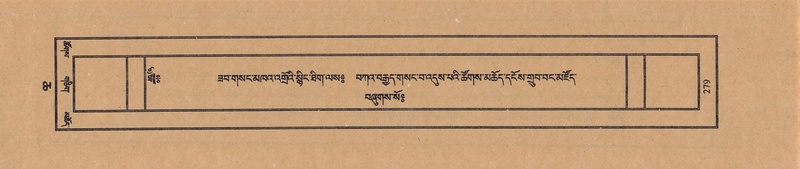 ཟབ་གསང་མཁའ་འགྲོའི་སྙིང་ཐིག་ལས༔ བཀའ་བརྒྱད་གསང་བ་འདུས་པའི་ཚོགས་མཆོད་དངོས་གྲུབ་བང་མཛོད་
བཞུགས་སོ༔
279